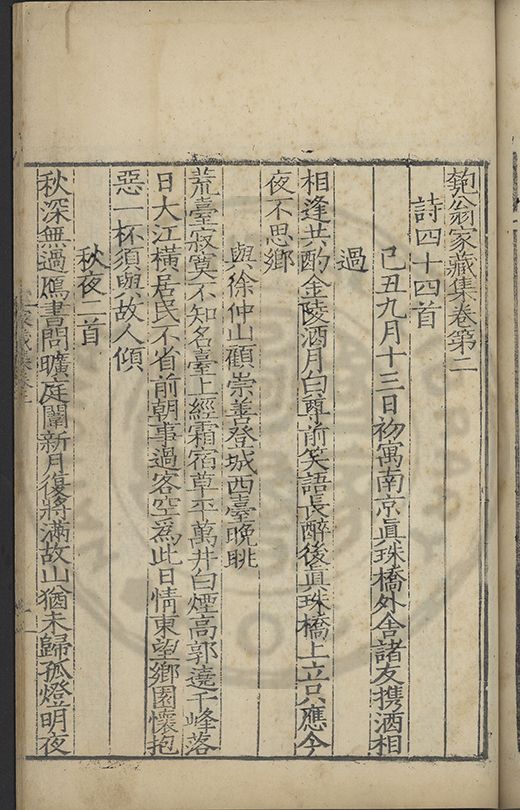 匏翁家藏集卷第二
詩四十四首
己丑九月十三日初寓南京眞珠橋外舍諸友携酒相
過
相逢共酌金陵酒月白尊前笑語長醉後眞珠橋上立只應今
夜不思鄉
與徐仲山顧崇善登城西臺晚眺
荒臺寂寞不知名臺上經霜宿草平萬井白煙高郭遶千峰落
日大江橫居民不省前朝事過客空爲此日情東望鄉園懷抱
惡一杯須與故人傾
秋夜二首
秋深無過鴈書問曠庭闈新月復將滿故山猶未歸孤燈明夜